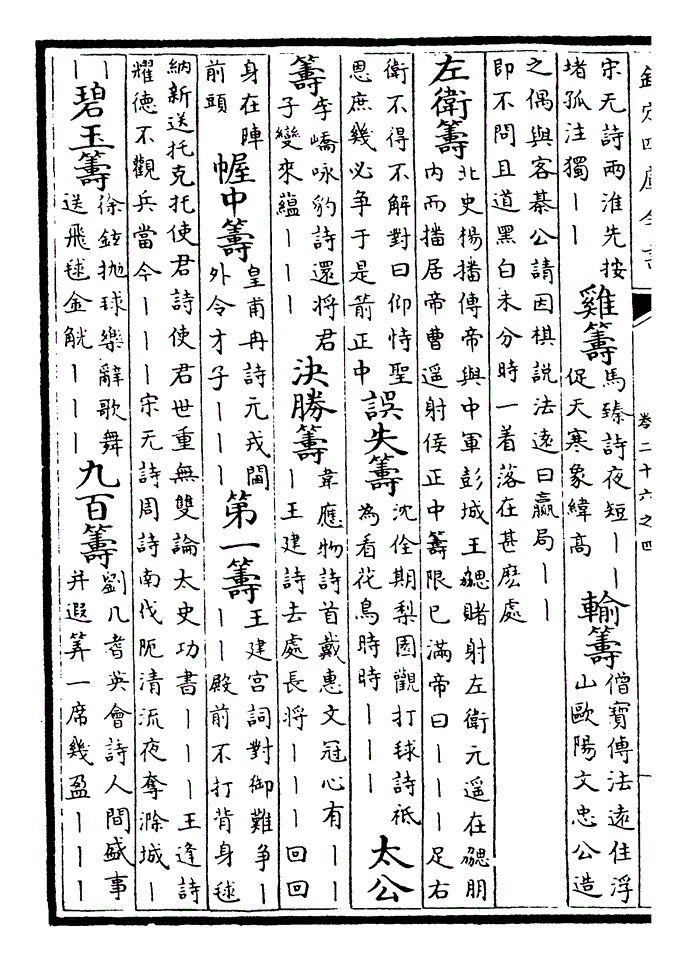 欽定四庫全書
卷二十六之四
宋无詩兩淮先按
堵孤注獨丨丨
雞籌
馬臻詩夜短丨丨
促天寒象緯高
輸籌
僧寶傳法遠住浮
山歐陽文忠公造
之偶與客棊公請因棋說法遠曰贏局丨丨
即不問且道黑白未分時一着落在甚麽處
左衛籌
北史楊播傳帝與中軍彭城王勰賭射左衛元遥在勰朋
内而播居帝曹遥射侯正中籌限已滿帝曰丨丨丨足右
衛不得不解對曰仰恃聖
恩庶幾必争于是箭正中
誤失籌
沈佺期梨園觀打球詩祗
為看花鳥時時丨丨丨
太公
籌
李嶠咏豹詩還将君
子變來蘊丨丨丨
決勝籌
韋應物詩首戴惠文冠心有丨丨
丨王建詩去處長将丨丨丨回回
身在陣
前頭
幄中籌
皇甫冉詩元戎閫
外令才子丨丨丨
第一籌
王建宫詞對御難争丨
丨丨殿前不打背身毬
納新送托克托使君詩使君世重無雙論太史功書丨丨丨王逢詩
耀德不觀兵當今丨丨丨宋无詩周詩南伐阨清流夜奪滁城丨
丨
丨
碧玉籌
徐鉉抛球樂辭歌舞
送飛毬金觥丨丨丨
九百籌
劉几耆英會詩人間盛事
并遐筭一席幾盈丨丨丨